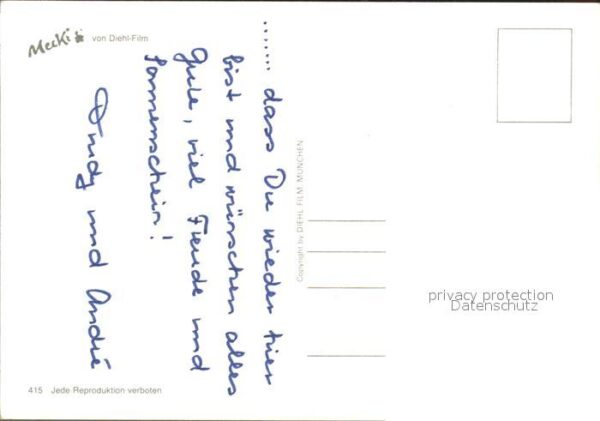 Mecki von Diehl-Film
....... dass Du wieder hier
bist und wünschen alles
Gute, viel Freude und
Sonnenschein!
Trudy und André
Copyright by DIEHL FILM, MÜNCHEN
privacy protection
Datenschutz
415 Jede Reproduktion verboten